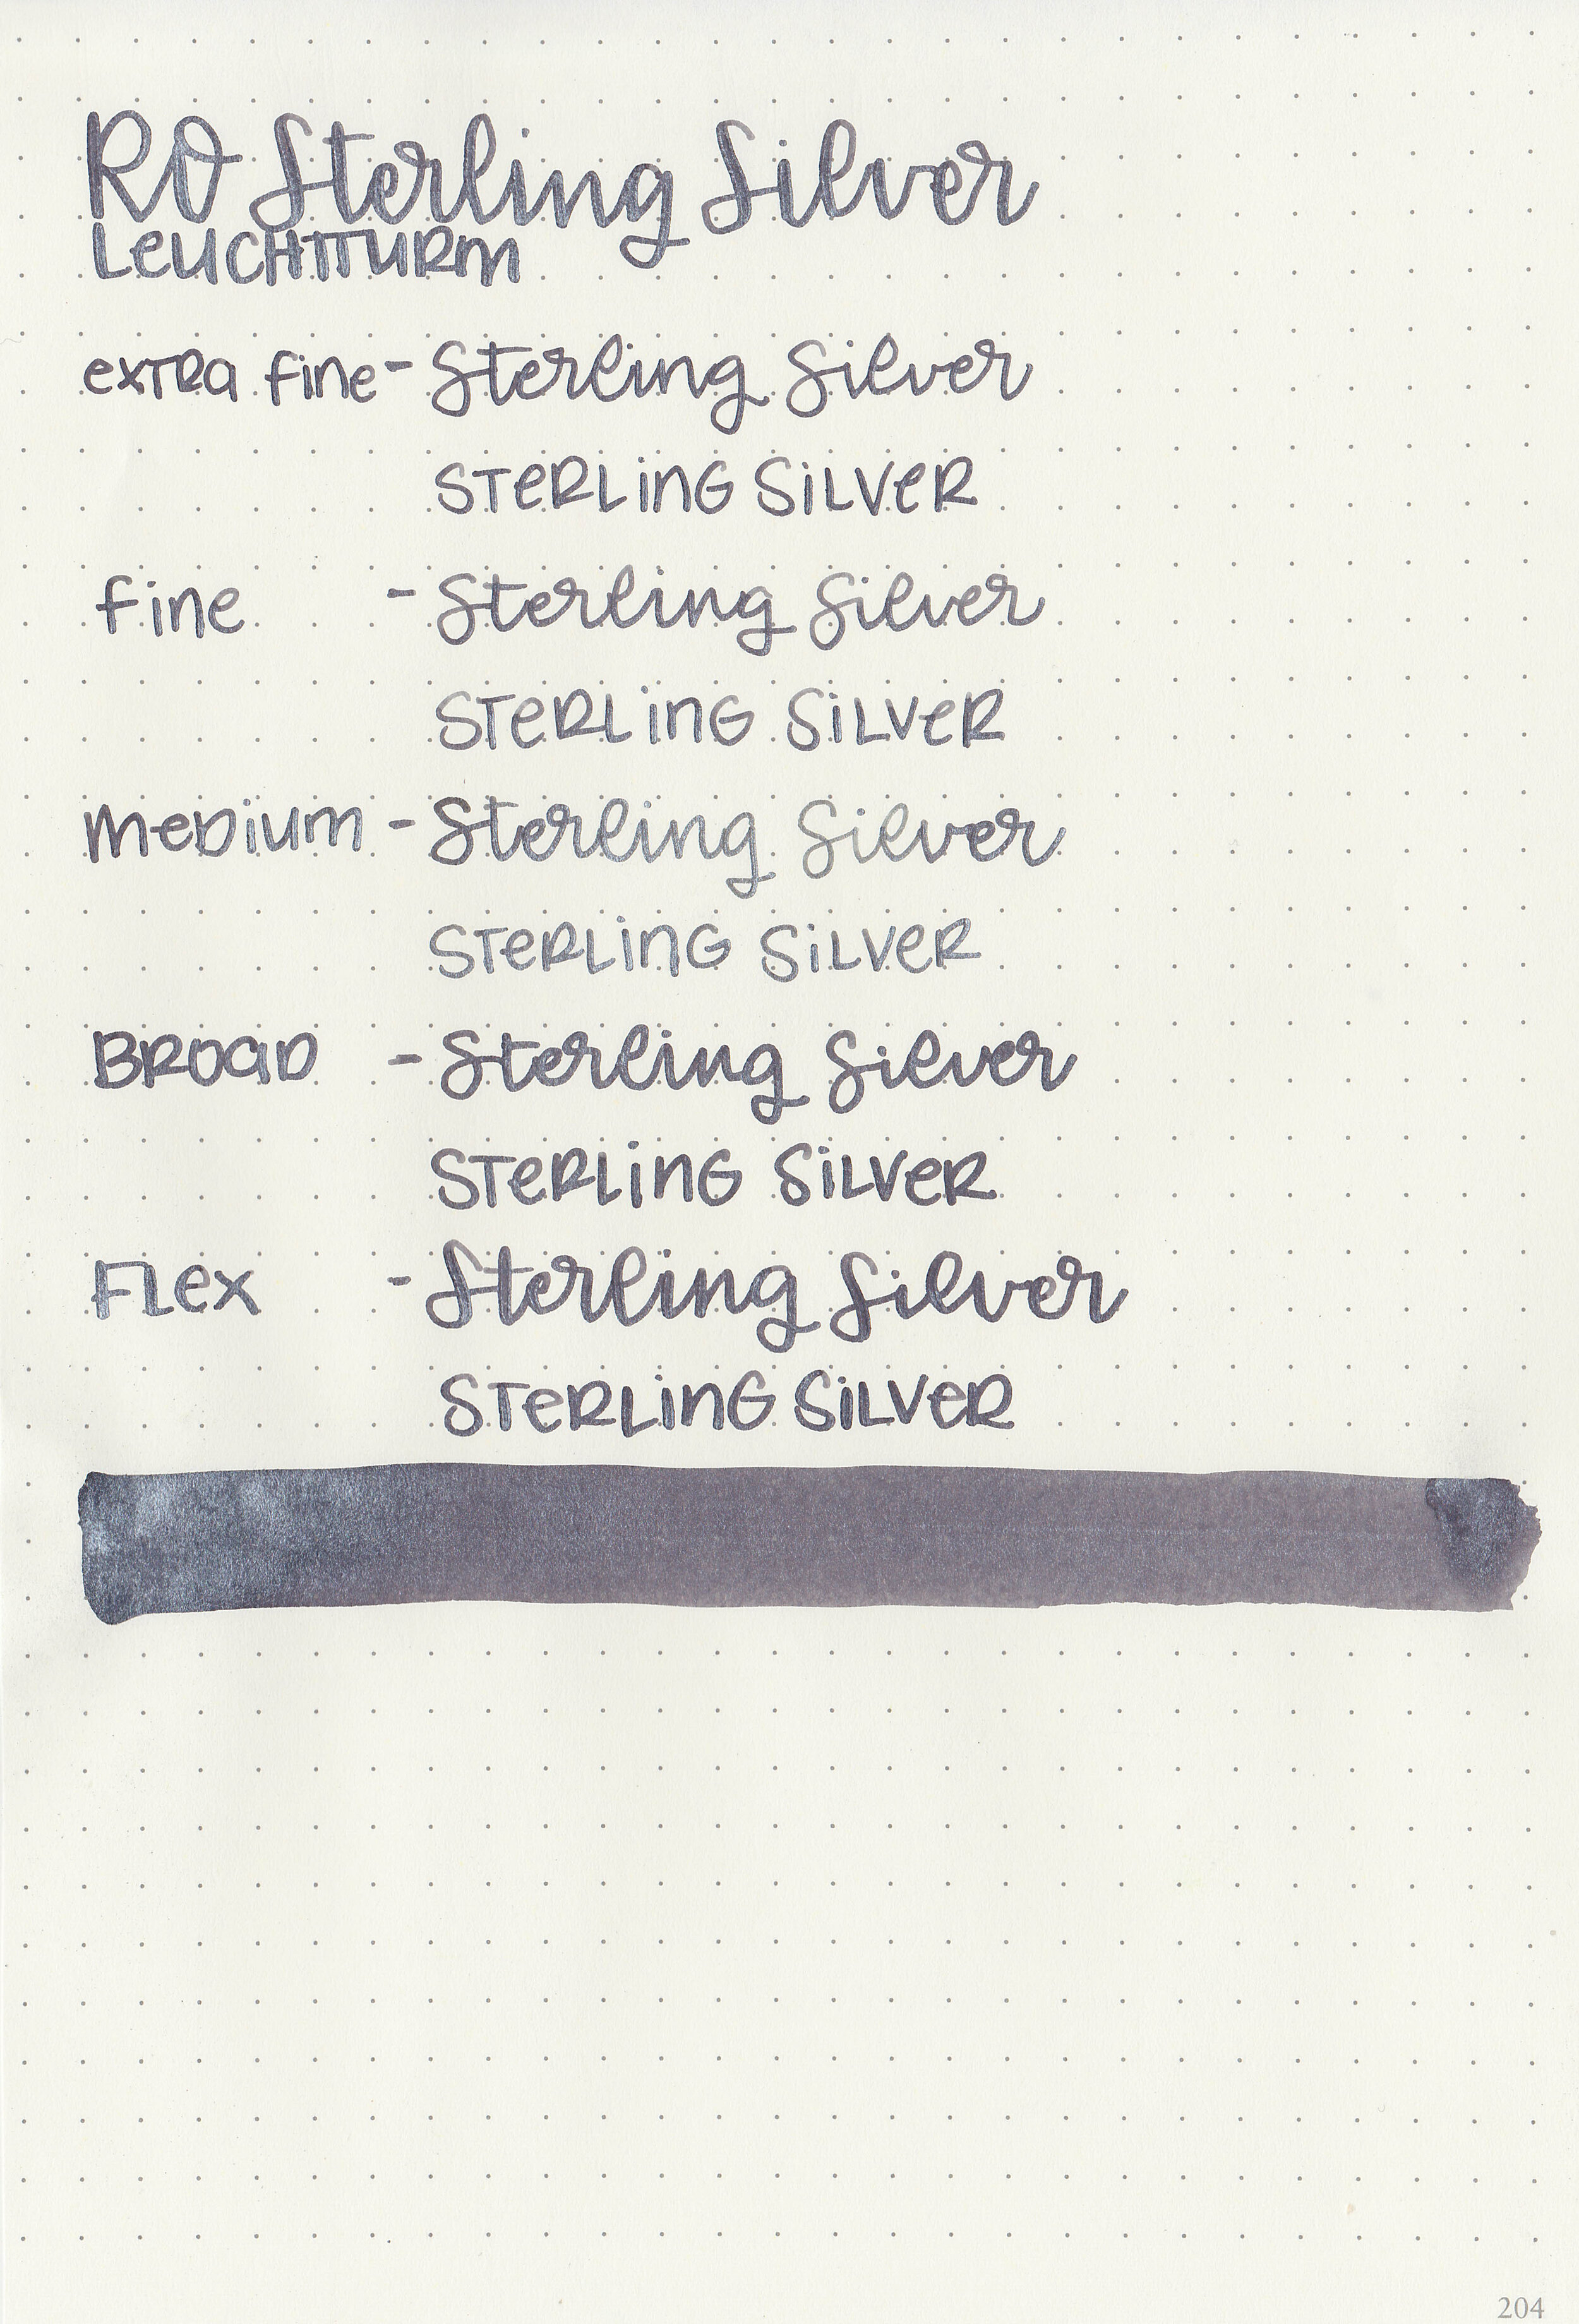 RO Sterling Silver
LEUCHTTURM
extra fine - Sterling Silver
STERLING SILVER
fine - Sterling Silver
STERLING SILVER
medium - Sterling Silver
STERLING SILVER
BROAD - Sterling Silver
STERLING SILVER
FLEX - Sterling Silver
STERLING SILVER
204